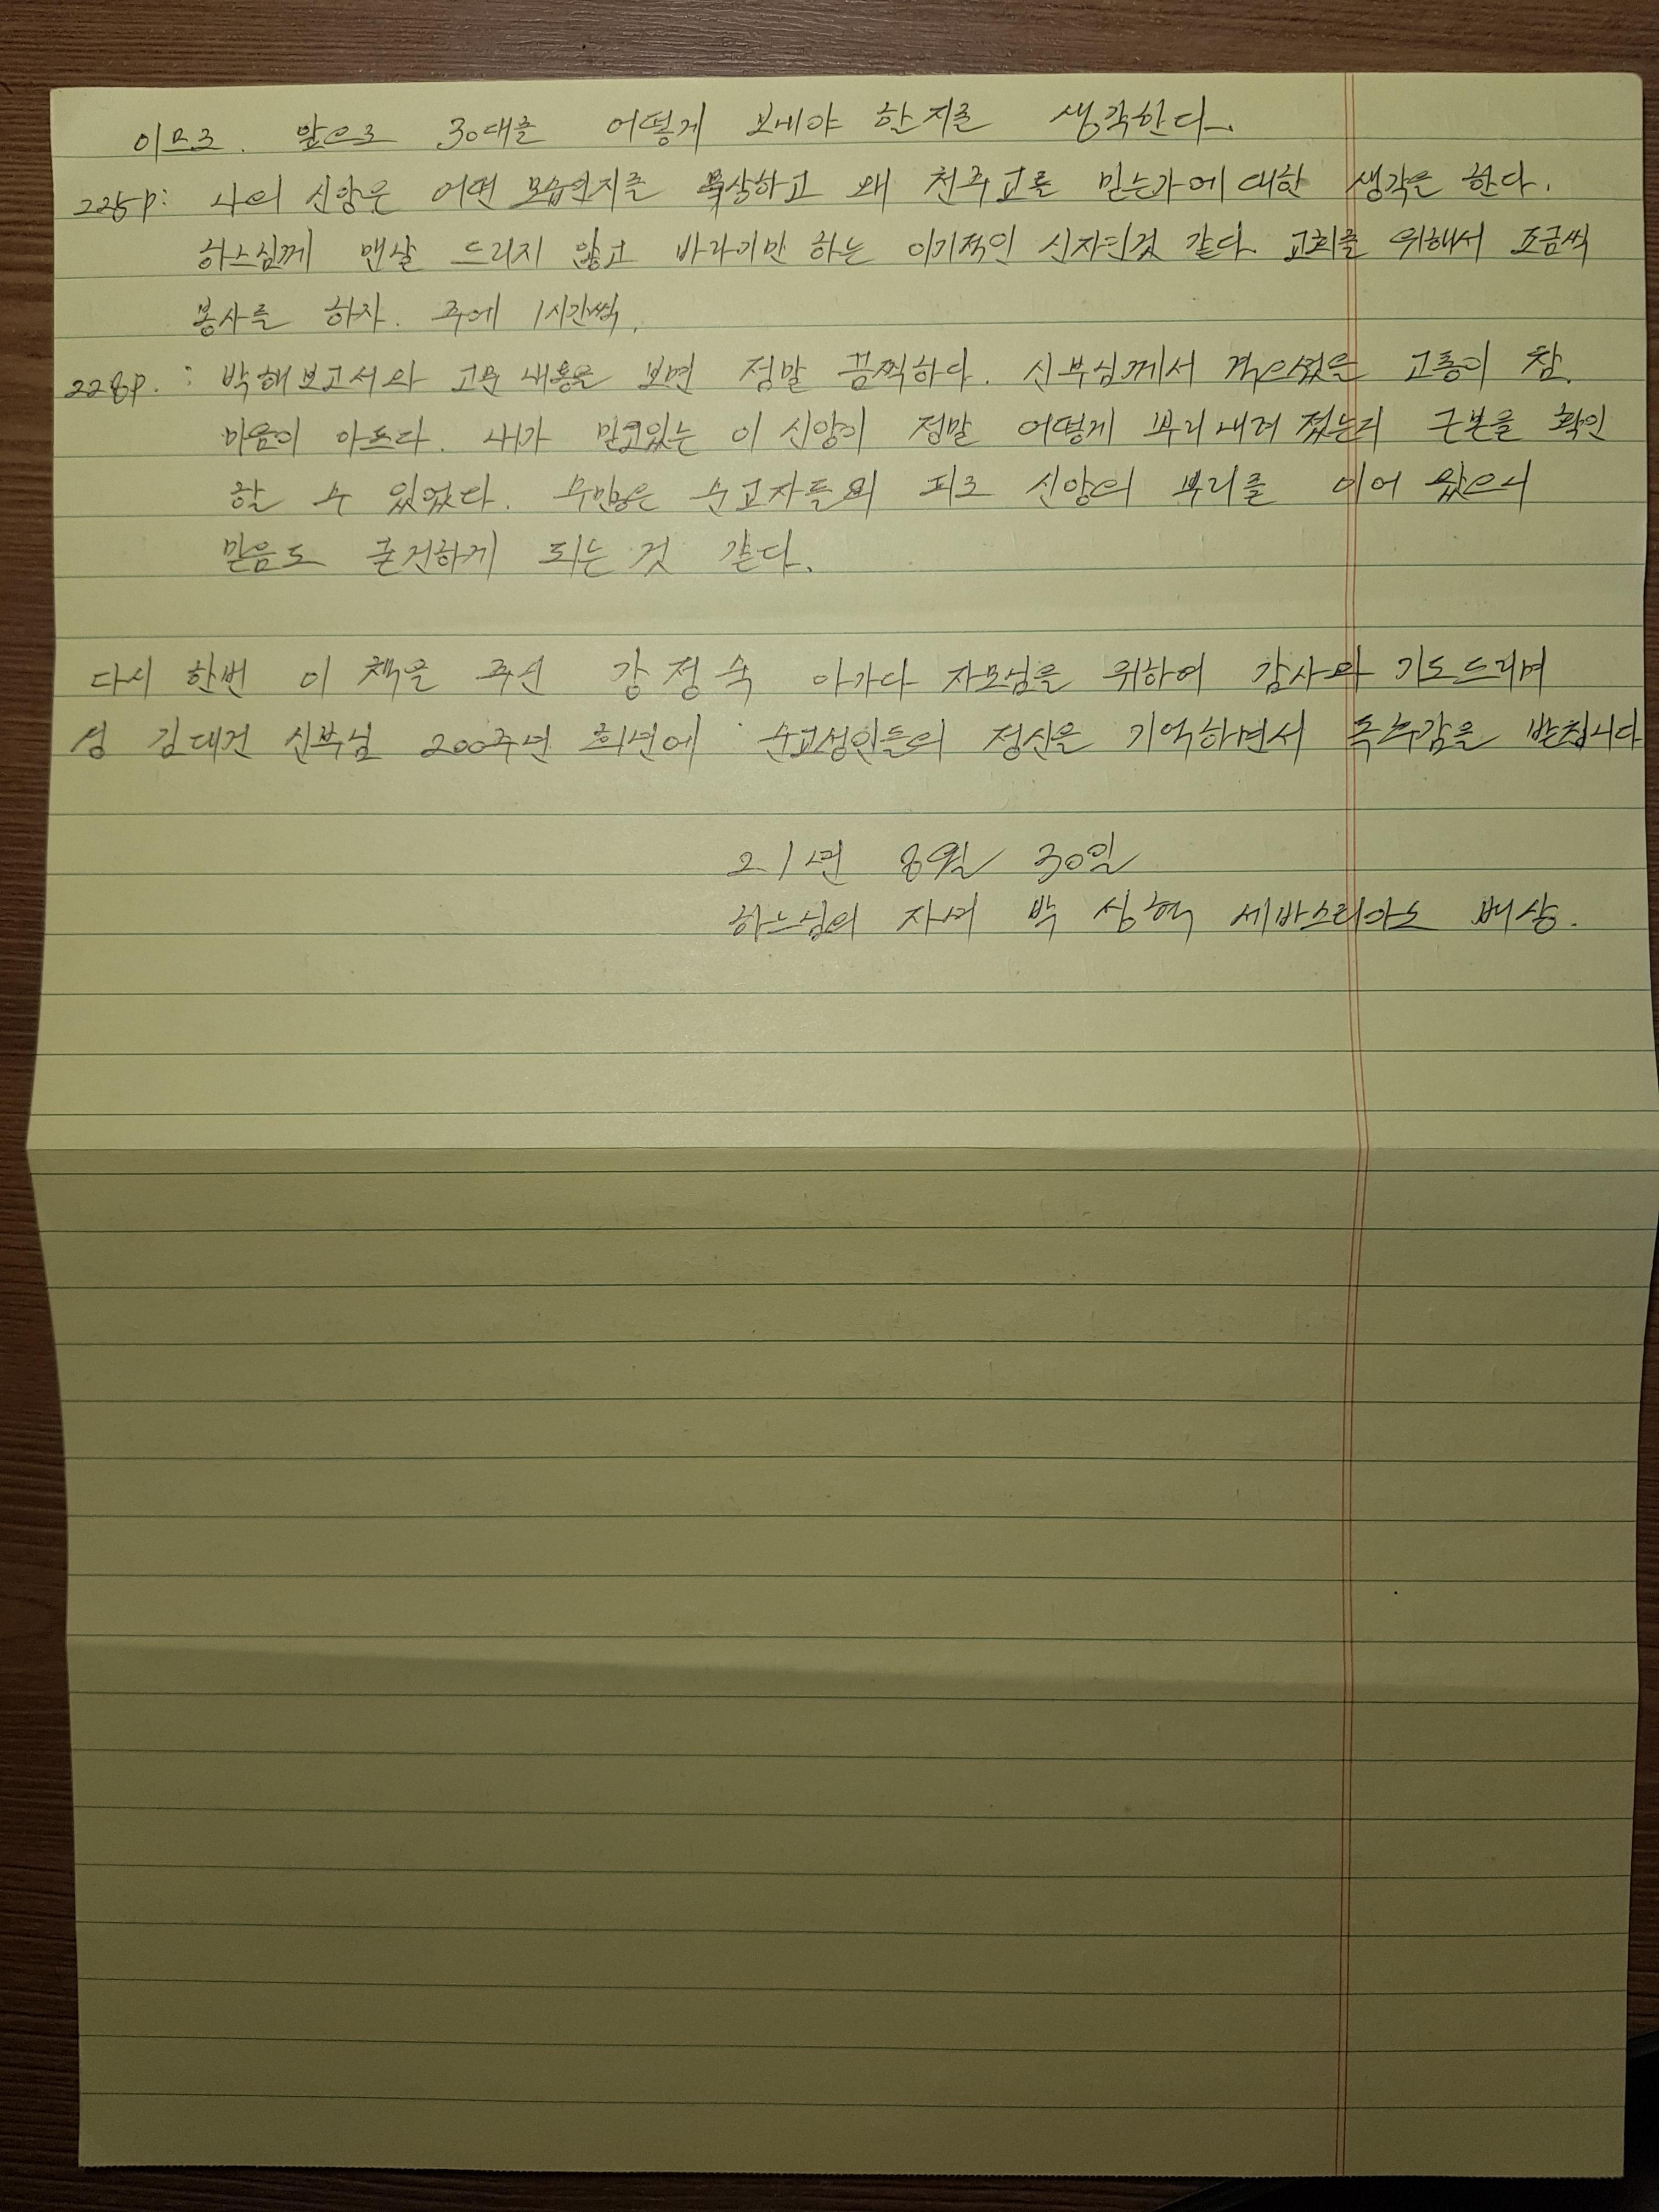 이므로. 앞으로 30대를 어떻게 보내야 한지를 생각한다.
225p: 나의 신앙은 어떤 모습인지를 묵상하고 왜 천주교를 믿는가에 대한 생각을 한다.
하느님께 맨날 드리지 않고 바라기만 하는 이기적인 신자인것 같다. 교회를 위해서 조금씩
봉사를 하자. 주에 1시간씩.
228p. : 박해보고서와 고문 내용을 보면 정말 끔찍하다. 신부님께서 겪으셨을 고통이 참.
마음이 아프다. 내가 믿고있는 이 신앙이 정말 어떻게 뿌리내려 졌는지 근본을 확인
할 수 있었다. 수많은 순교자들의 피로 신앙의 뿌리를 이어 왔으니
믿음도 굳건하게 되는 것 같다.
다시 한번 이 책을 주신 강정숙 아가다 자모님을 위하여 감사와 기도드리며
성 김대건 신부님 200주년 희년에 순교성인들의 정신을 기억하면서 독후감을 바칩니다
21년 8월 30일
하느님의 자녀 박 상혁 세바스티아노 배상.